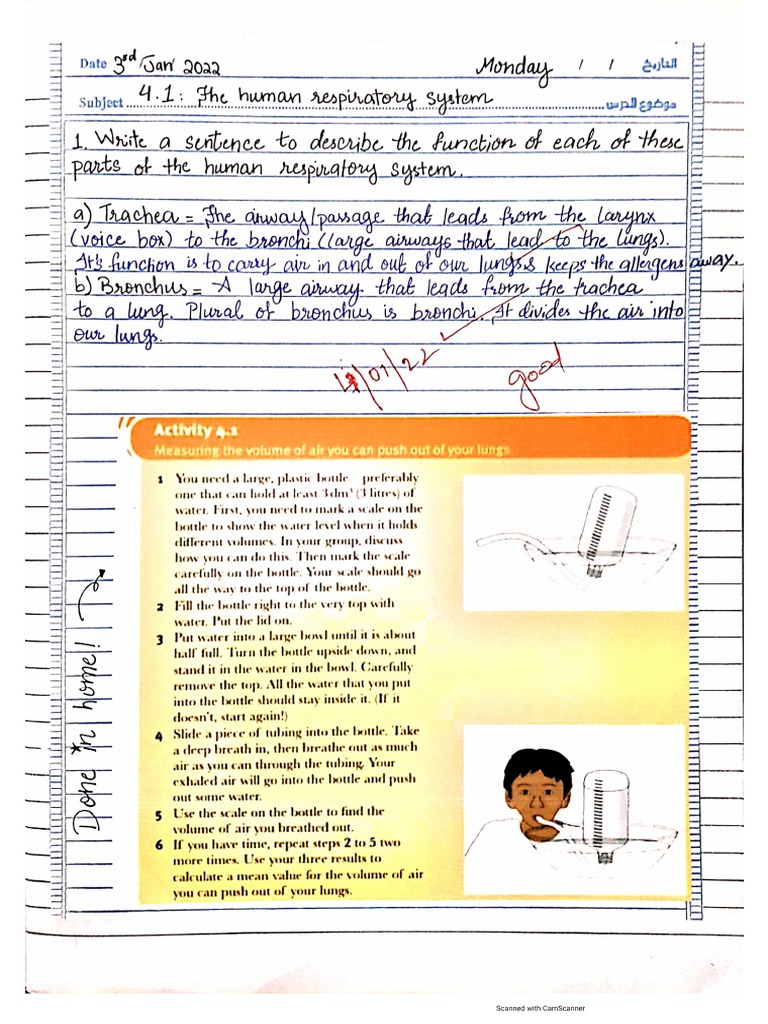 Date 3rd Jan 2022 Monday / / التاريخ
Subject 4.1: The human respiratory system موضوع الدرس
1. Write a sentence to describe the function of each of these
parts of the human respiratory system.
a) Trachea = The airway/passage that leads from the larynx
(voice box) to the bronchi (large airways that lead to the lungs).
It's function is to carry air in and out of our lungs.& keeps the allergens away.
b) Bronchus = A large airway that leads from the trachea
to a lung. Plural of bronchus is bronchi. It divides the air into
our lungs.
4/01/22 good
Activity 4.1
Measuring the volume of air you can push out of your lungs
1 You need a large, plastic bottle preferably
one that can hold at least 3dm³ (3 litres) of
water. First, you need to mark a scale on the
bottle to show the water level when it holds
different volumes. In your group, discuss
how you can do this. Then mark the scale
carefully on the bottle. Your scale should go
all the way to the top of the bottle.
2 Fill the bottle right to the very top with
water. Put the lid on.
3 Put water into a large bowl until it is about
half full. Turn the bottle upside down, and
stand it in the water in the bowl. Carefully
remove the top. All the water that you put
into the bottle should stay inside it. (If it
doesn't, start again!)
4 Slide a piece of tubing into the bottle. Take
a deep breath in, then breathe out as much
air as you can through the tubing. Your
exhaled air will go into the bottle and push
out some water.
5 Use the scale on the bottle to find the
volume of air you breathed out.
6 If you have time, repeat steps 2 to 5 two
more times. Use your three results to
calculate a mean value for the volume of air
you can push out of your lungs.
Done in home!
Scanned with CamScanner